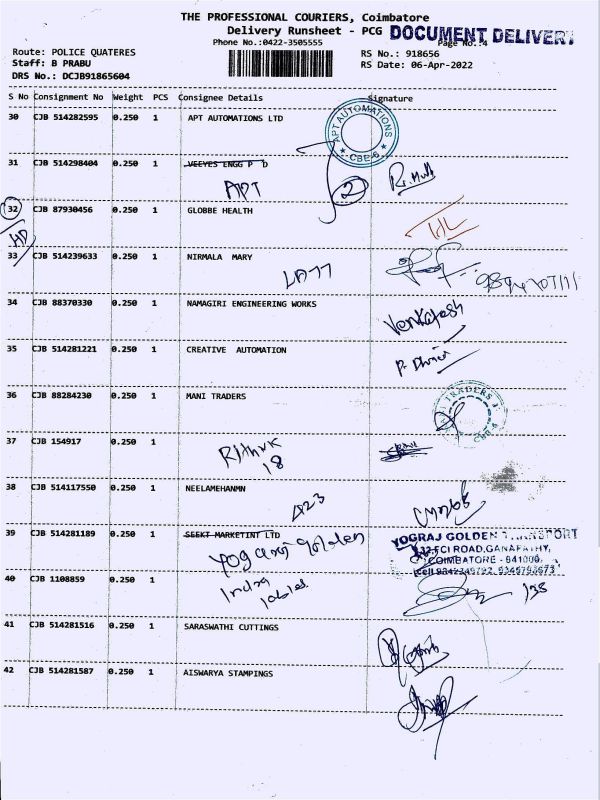 THE PROFESSIONAL COURIERS, Coimbatore
Delivery Runsheet - PCG DOCUMENT DELIVERY
Phone No.:0422-3505555 Page No.:4
Route: POLICE QUATERES RS No.: 918656
Staff: B PRABU RS Date: 06-Apr-2022
DRS No.: DCJB91865604
S No Consignment No Weight PCS Consignee Details Signature
30 CJB 514282595 0.250 1 APT AUTOMATIONS LTD
APT AUTOMATIONS
★ CBE-6 ★
31 CJB 514298404 0.250 1 VEEYES ENGG P D
APT 2
32 CJB 87930456 0.250 1 GLOBBE HEALTH
HD
33 CJB 514239633 0.250 1 NIRMALA MARY
34 CJB 88370330 0.250 1 NAMAGIRI ENGINEERING WORKS
Venkatesh
35 CJB 514281221 0.250 1 CREATIVE AUTOMATION
36 CJB 88284230 0.250 1 MANI TRADERS
TRADERS
37 CJB 154917 0.250 1
18
38 CJB 514117550 0.250 1 NEELAMEHANMN
A23
39 CJB 514281189 0.250 1 SEEKT MARKETINT LTD
Yogaraj Golden
YOGRAJ GOLDEN TRANSPORT
132,FCI ROAD,GANAPATHY,
COIMBATORE - 641006.
40 CJB 1108859 0.250 1
India
41 CJB 514281516 0.250 1 SARASWATHI CUTTINGS
42 CJB 514281587 0.250 1 AISWARYA STAMPINGS